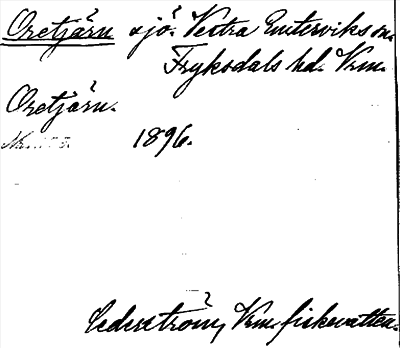 Oretjärn sjö. Vestra Emterviks sn.
Fryksdals hd. Vrm.
Oretjärn.
1896.
Cederström, Vrm. fiskevatten.